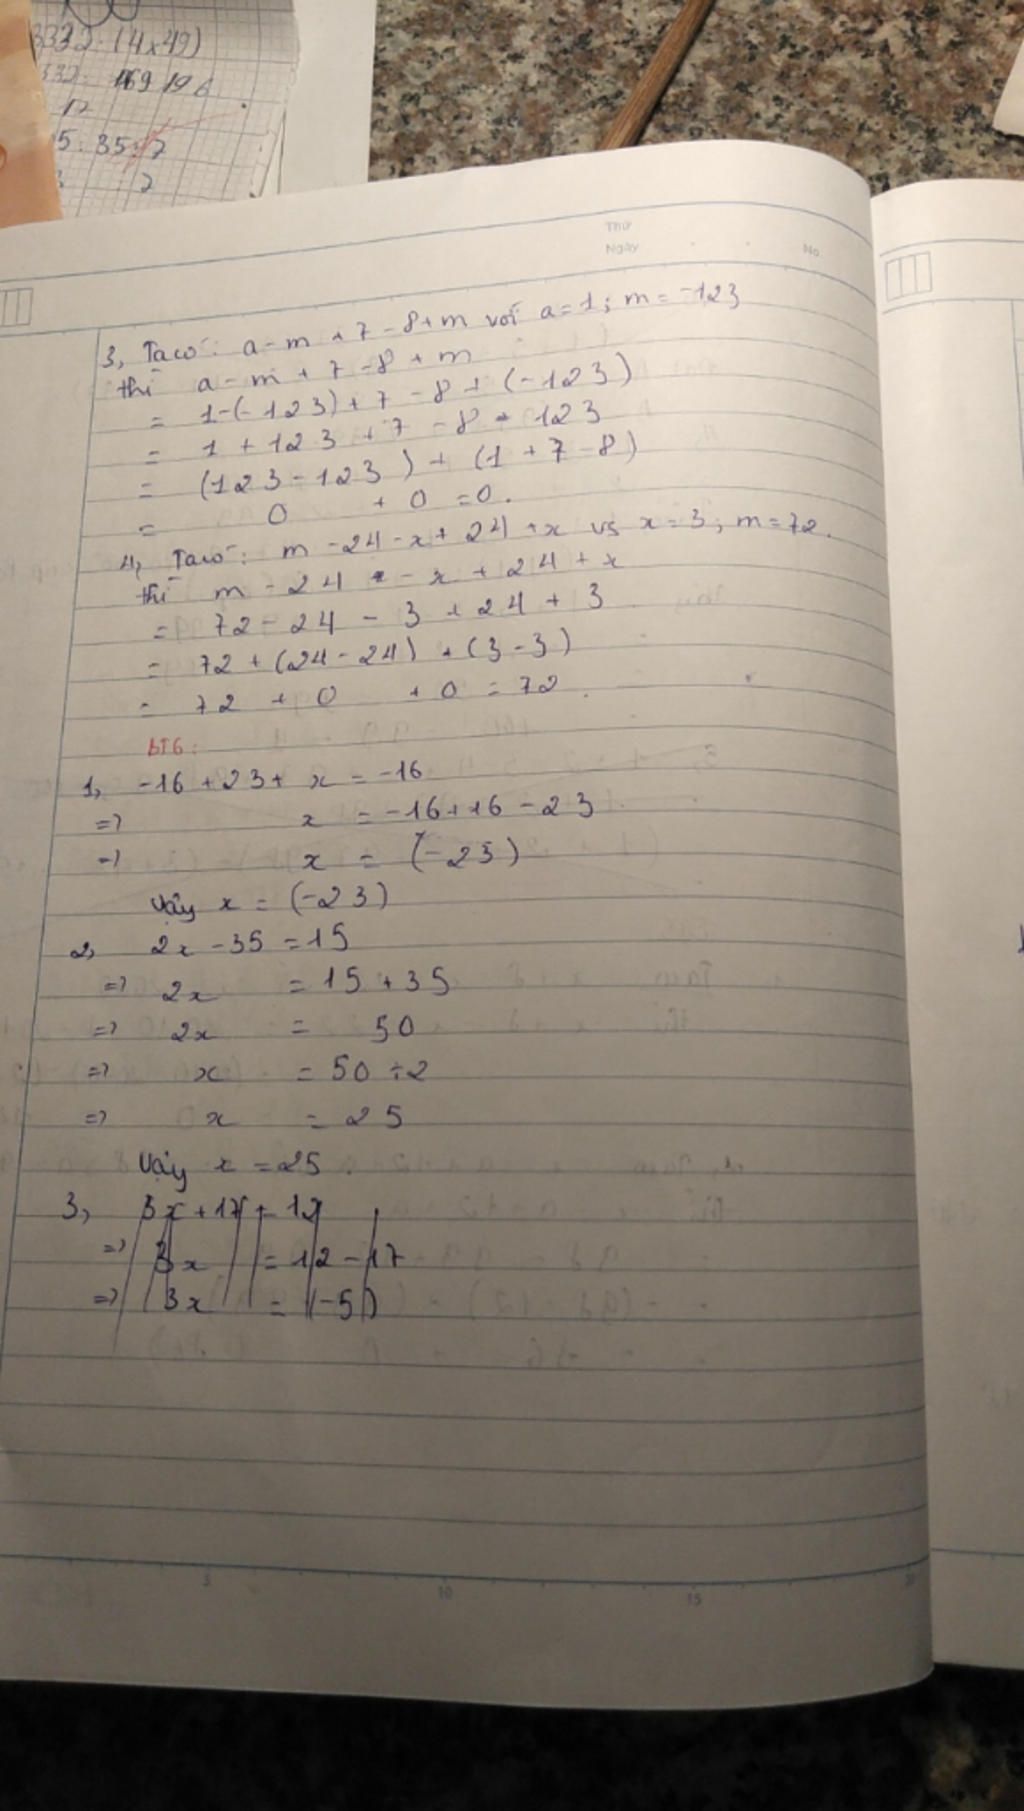 3332:(4x49)
332: 169 196
12
35:7
2
Thứ
Ngày
No.
3, Ta có: a-m+7-8+m với a=1; m=-123
thì a-m+7-8+m
= 1-(-123)+7-8+(-123)
= 1+123+7-8-123
= (123-123)+(1+7-8)
= 0 +0=0.
4, Ta có: m-24-x+24+x vs x=3; m=72.
thì m-24-x+24+x
= 72-24-3+24+3
= 72+(24-24)+(3-3)
= 72+0 +0=72.
BT6:
1, -16+23+x=-16
=> x=-16+16-23
=> x=(-23)
Vậy x=(-23)
2, 2x-35=15
=> 2x =15+35
=> 2x = 50
=> x =50÷2
=> x =25
Vậy x=25.
3, 3x+17=12
=> 3x =12-17
=> 3x =(-5)
5
10
15
20